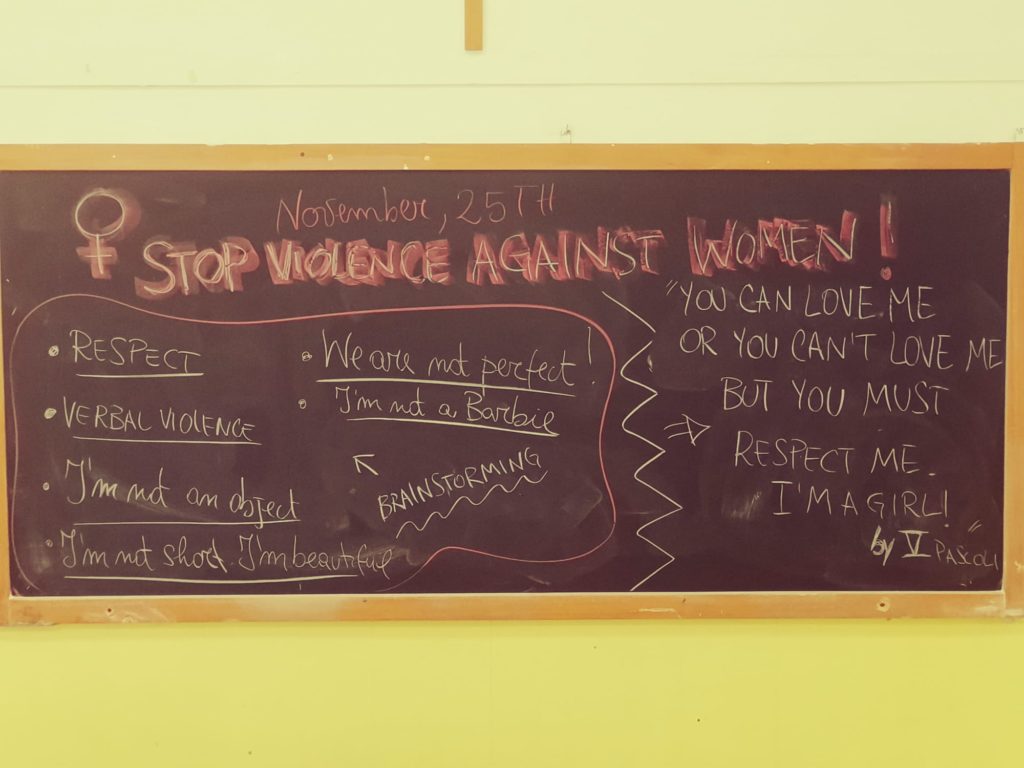 November, 25TH
STOP VIOLENCE AGAINST WOMEN!
• RESPECT
• VERBAL VIOLENCE
• I'm not an object
• I'm not short. I'm beautiful
• We are not perfect!
• I'm not a Barbie
BRAINSTORMING
"YOU CAN LOVE ME
OR YOU CAN'T LOVE ME
BUT YOU MUST
RESPECT ME.
I'M A GIRL!"
by V PASCOLI